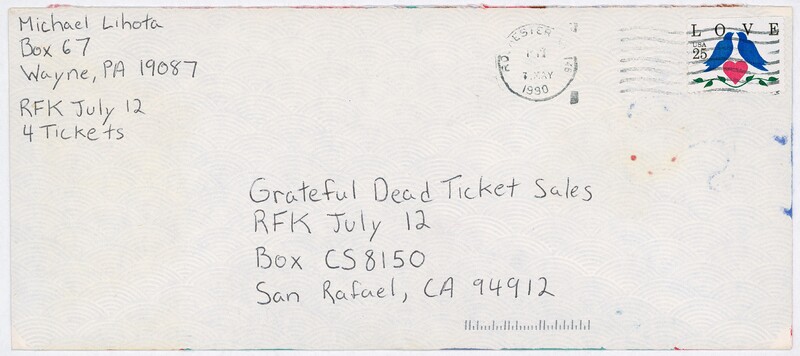 Michael Lihota
Box 67
Wayne, PA 19087
RFK July 12
4 Tickets
PM
MAY
1990
LOVE
USA
25
Grateful Dead Ticket Sales
RFK July 12
Box CS8150
San Rafael, CA 94912